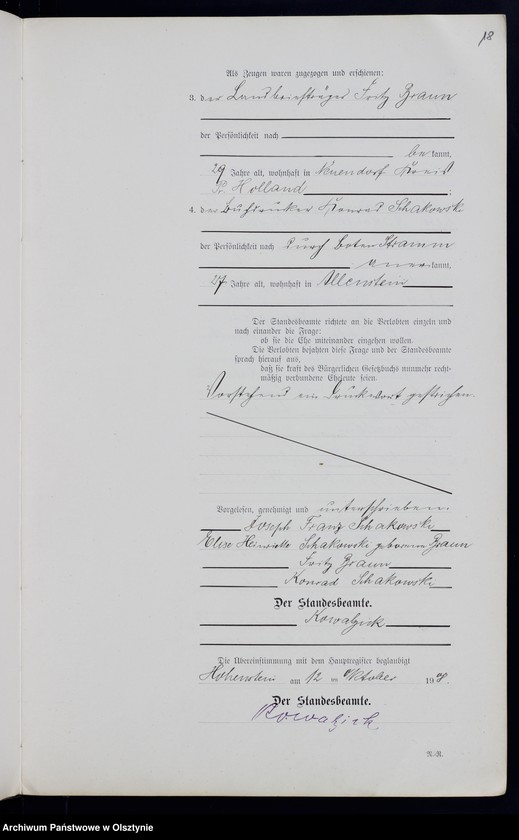 18
Als Zeugen waren zugezogen und erschienen:
3. der Landbriefträger Fritz Braun
der Persönlichkeit nach
be kannt,
29 Jahre alt, wohnhaft in Neuendorf Kreis
Pr. Holland ;
4. der Buchdrucker Konrad Schakowski
der Persönlichkeit nach durch Boten Stramm
aner kannt,
27 Jahre alt, wohnhaft in Allenstein
Der Standesbeamte richtete an die Verlobten einzeln und
nach einander die Frage:
ob sie die Ehe miteinander eingehen wollen.
Die Verlobten bejahten diese Frage und der Standesbeamte
sprach hierauf aus,
daß sie kraft des Bürgerlichen Gesetzbuchs nunmehr recht-
mäßig verbundene Eheleute seien.
Vorstehend ein Druckwort gestrichen.
Vorgelesen, genehmigt und unterschrieben.
Joseph Franz Schakowski
Elise Henriette Schakowski geborene Braun
Fritz Braun
Konrad Schakowski
Der Standesbeamte.
Kowalzick
Die Übereinstimmung mit dem Hauptregister beglaubigt
Hohenstein am 12 ten Oktober 1908.
Der Standesbeamte.
Kowalzick
N.-R.
Archiwum Państwowe w Olsztynie